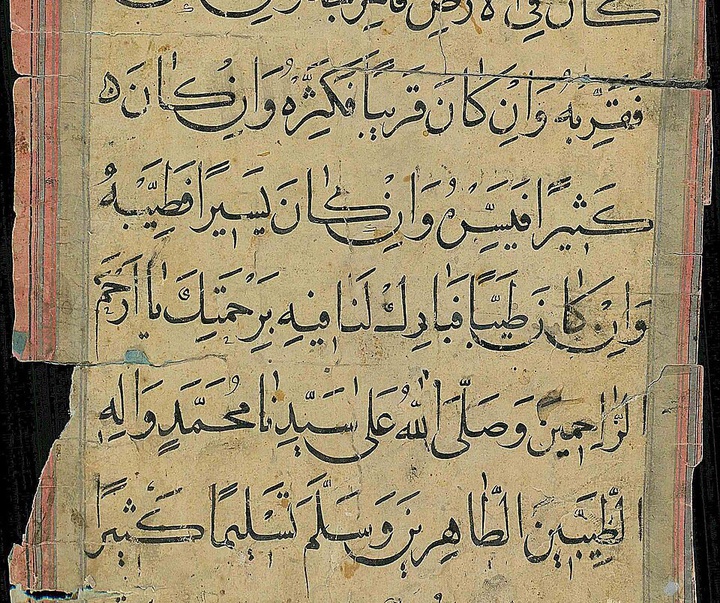 كَانَ فِي الْأَرْضِ
فَقَرِّبْهُ وَاِنْ كَانَ قَرِيبًا فَكَثِّرْهُ وَاِنْ كَانَ
كَثِيرًا فَيَسِّرْهُ وَاِنْ كَانَ يَسِيرًا فَطَيِّبْهُ
وَاِنْ كَانَ طَيِّبًا فَبَارِكْ لَنَا فِيهِ بِرَحْمَتِكَ يَا اَرْحَمَ
الرَّاحِمِينَ وَصَلَّى اللّٰهُ عَلٰى سَيِّدِنَا مُحَمَّدٍ وَاٰلِهِ
الطَّيِّبِينَ الطَّاهِرِينَ وَسَلَّمَ تَسْلِيمًا كَثِيرًا